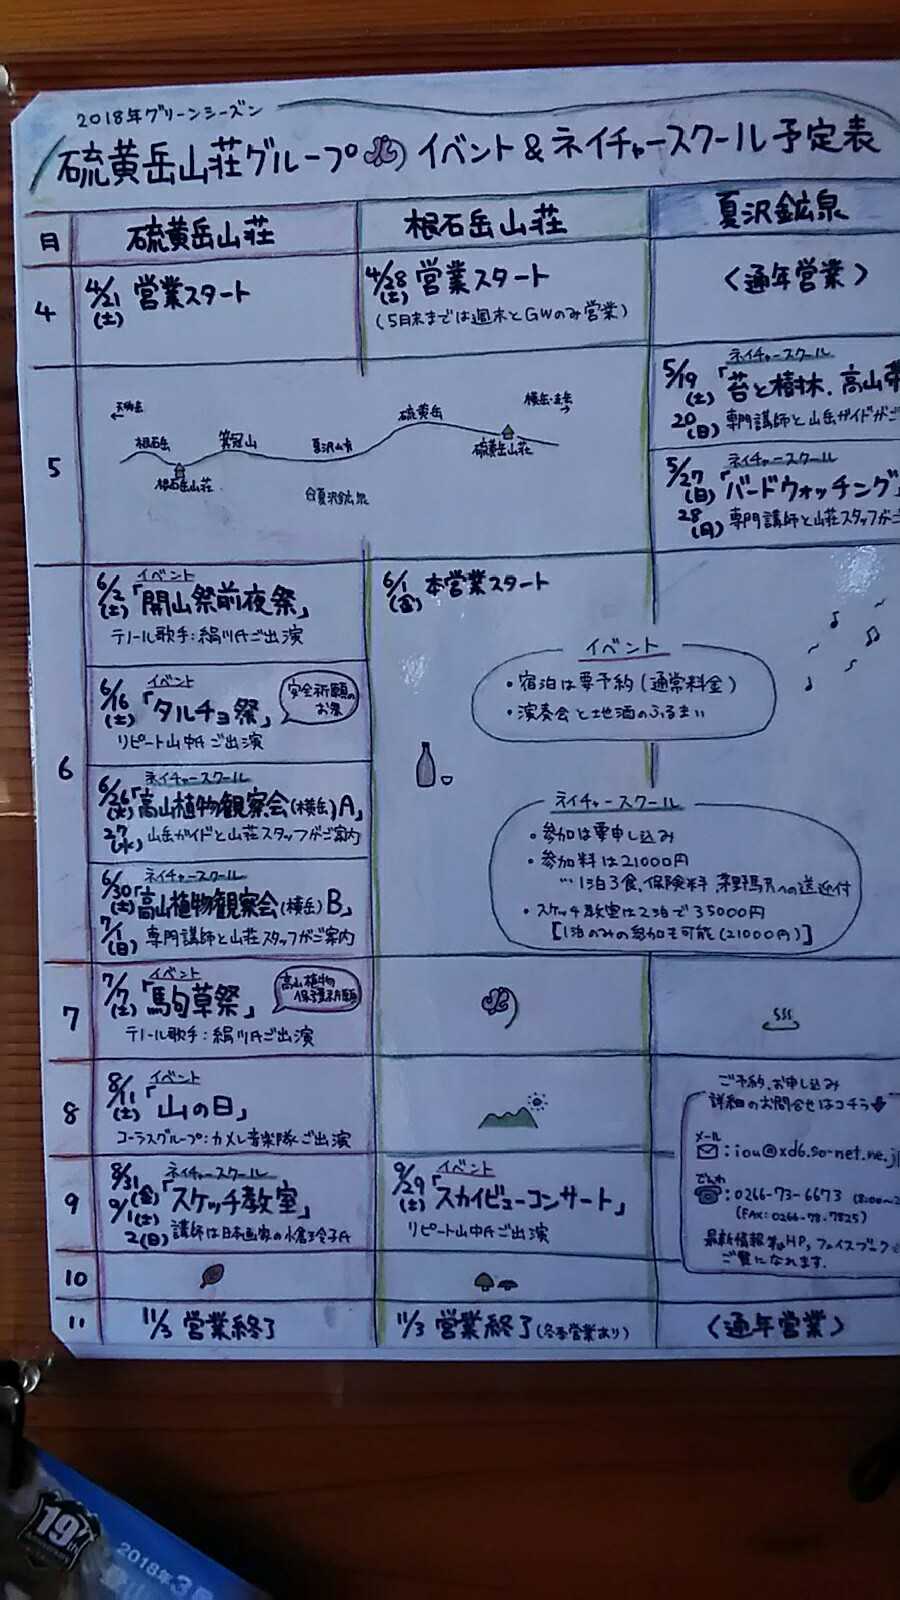 2018年グリーンシーズン
硫黄岳山荘グループ イベント&ネイチャースクール予定表
月 硫黄岳山荘 根石岳山荘 夏沢鉱泉
4
4/21(土) 営業スタート
4/28(土) 営業スタート
(5月末までは週末とGWのみ営業)
〈通年営業〉
5
天狗岳
根石岳
根石岳山荘
箕冠山
夏沢峠
夏沢鉱泉
硫黄岳
硫黄岳山荘
横岳・赤岳
ネイチャースクール
5/19(土)「苔と樹林、高山
20(日) 専門講師と山岳ガイドがご
ネイチャースクール
5/27(日)「バードウォッチング」
28(月) 専門講師と山荘スタッフがご
6
イベント
6/2(土)「開山祭前夜祭」
テノール歌手:絹川氏ご出演
イベント
6/16(土)「タルチョ祭」
安全祈願のお祭
リピート山中氏ご出演
ネイチャースクール
6/26(火)「高山植物観察会(横岳)A」
27(水) 山岳ガイドと山荘スタッフがご案内
ネイチャースクール
6/30(土)「高山植物観察会(横岳)B」
7/1(日) 専門講師と山荘スタッフがご案内
6/1(金) 本営業スタート
イベント
・宿泊は要予約(通常料金)
・演奏会と地酒のふるまい
ネイチャースクール
・参加は要申し込み
・参加料は21000円
…1泊3食、保険料、茅野駅への送迎付
・スケッチ教室は2泊で35000円
[1泊のみの参加も可能(21000円)]
7
イベント
7/7(土)「駒草祭」
高山植物
保護祈願
テノール歌手:絹川氏ご出演
8
イベント
8/11(土)「山の日」
コーラスグループ:カメレ音楽隊ご出演
9
ネイチャースクール
8/31(金)「スケッチ教室」
9/1(土)
2(日) 講師は日本画家の小倉玲子氏
イベント
9/29(土)「スカイビューコンサート」
リピート山中氏ご出演
ご予約、お申し込み
詳細のお問合せはコチラ
メール
:iou@xd6.so-net.ne.j
でんわ
:0266-73-6673 (8:00~
(FAX:0266-78-7825)
最新情報等はHP、フェイスブック
ご覧になれます。
10
11
11/3 営業終了
11/3 営業終了(冬季営業あり)
〈通年営業〉
19th
2018年3月